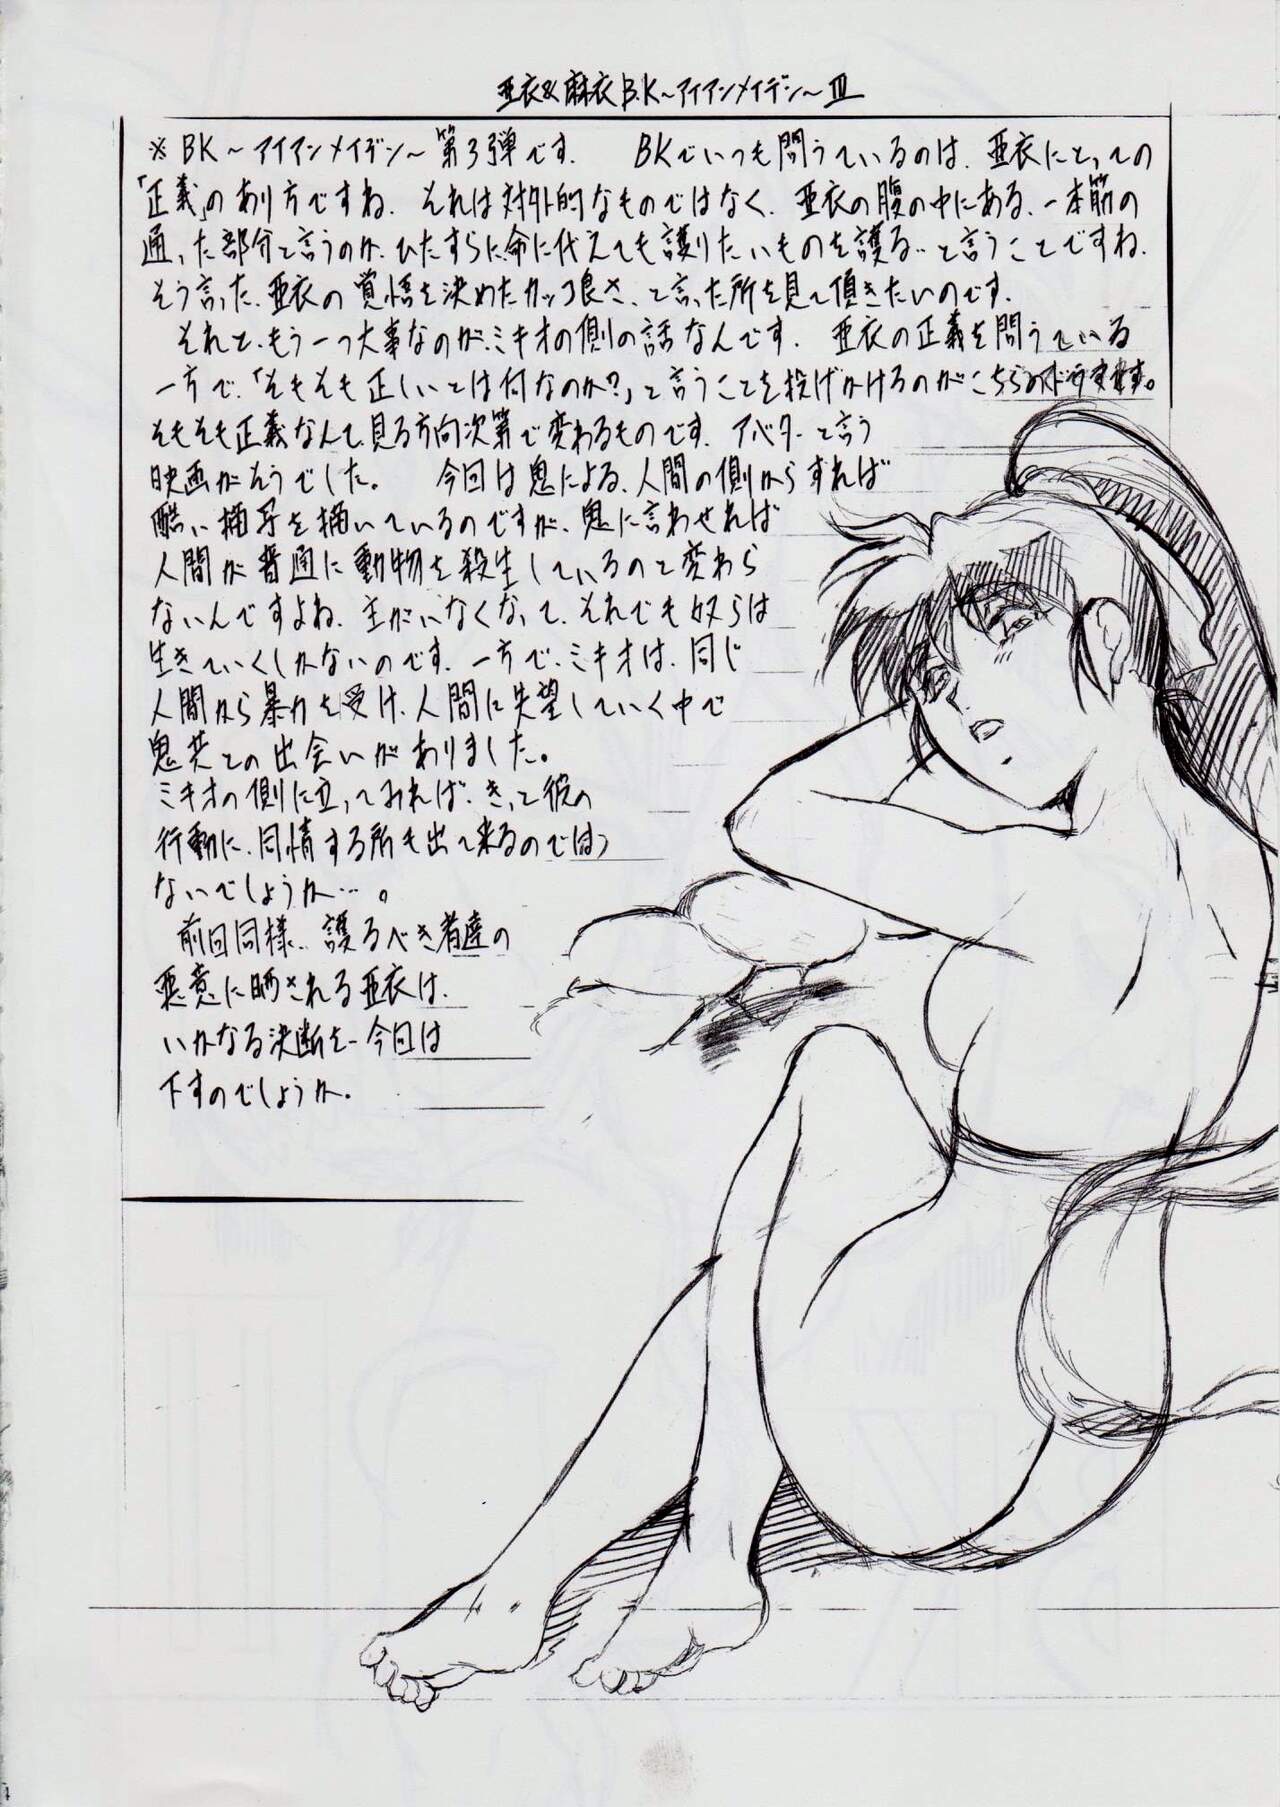 亜衣&麻衣B.K～アイアンメイデン～III
※BK～アイアンメイデン～第3弾です. BKでいつも問うているのは、亜衣にとっての
「正義」のあり方ですね. それは対外的なものではなく、亜衣の腹の中にある、一本筋の
通った部分と言うのか、ひたすらに命に代えても護りたいものを護る‥と言うことですね.
そう言った、亜衣の覚悟を決めたカッコ良さ、と言った所を見て頂きたいのです.
それと、もう一つ大事なのが、ミキオの側の話なんです. 亜衣の正義を問うている
一方で、「そもそも正しいとは何なのか?」と言うことを投げかけるのがこちらの
そもそも正義なんて、見る方向次第で変わるものです. アバターと言う
映画がそうでした。 今回は鬼による、人間の側からすれば
酷い描写を描いているのですが、鬼に言わせれば
人間が普通に動物を殺生しているのと変わら
ないんですよね. 主がいなくなって、それでも奴らは
生きていくしかないのです. 一方で、ミキオは、同じ
人間から暴力を受け、人間に失望していく中で
鬼共との出会いがありました。
ミキオの側に立ってみれば、きっと彼の
行動に、同情する所も出て来るのでは
ないでしょうか…。
前回同様、護るべき者達の
悪意に晒される亜衣は、
いかなる決断を、今回は
下すのでしょうか.
4